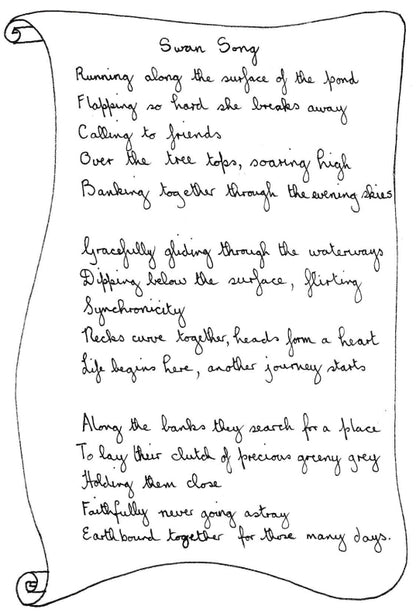 Swan Song
Running along the surface of the pond
Flapping so hard she breaks away
Calling to friends
Over the tree tops, soaring high
Banking together through the evening skies
Gracefully gliding through the waterways
Dipping below the surface, flirting
Synchronicity
Necks curve together, heads form a heart
Life begins here, another journey starts
Along the banks they search for a place
To lay their clutch of precious greeny grey
Holding them close
Faithfully never going astray
Earthbound together for those many days.